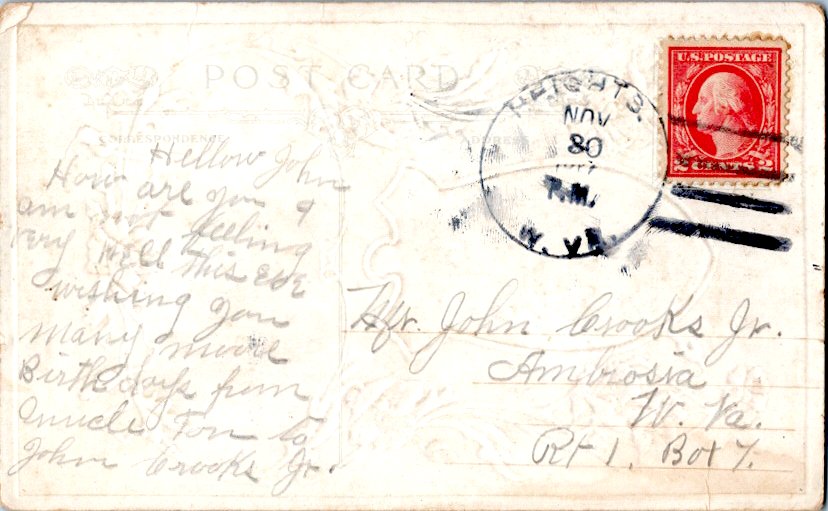 POST CARD
CORRESPONDENCE
HEIGHTS.
NOV
30
P.M.
W. VA.
U.S. POSTAGE
2 CENTS 2
Hellow John
How are you I
am not feeling
very well this eve
wishing you
many moore
Birthdays from
Uncle Tom to
John Crooks Jr.
Mr. John Crooks Jr.
Ambrosia
W. Va.
Rt 1. Box 7.